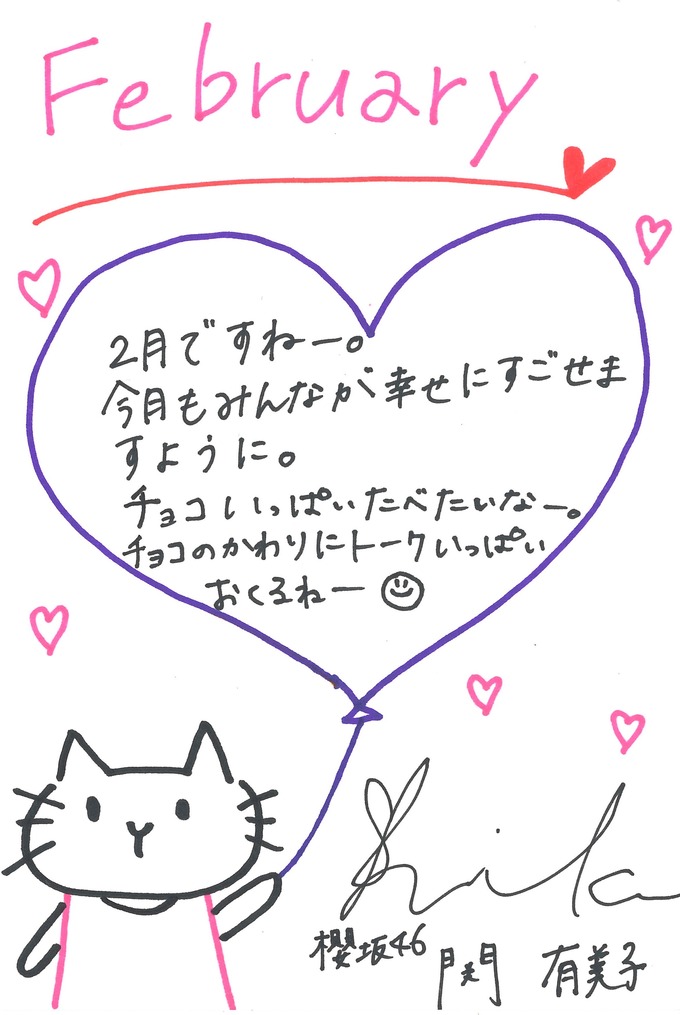 February
2月ですねー。
今月もみんなが幸せにすごせま
すように。
チョコいっぱいたべたいなー。
チョコのかわりにトークいっぱい
おくるねー
櫻坂46
関 有美子